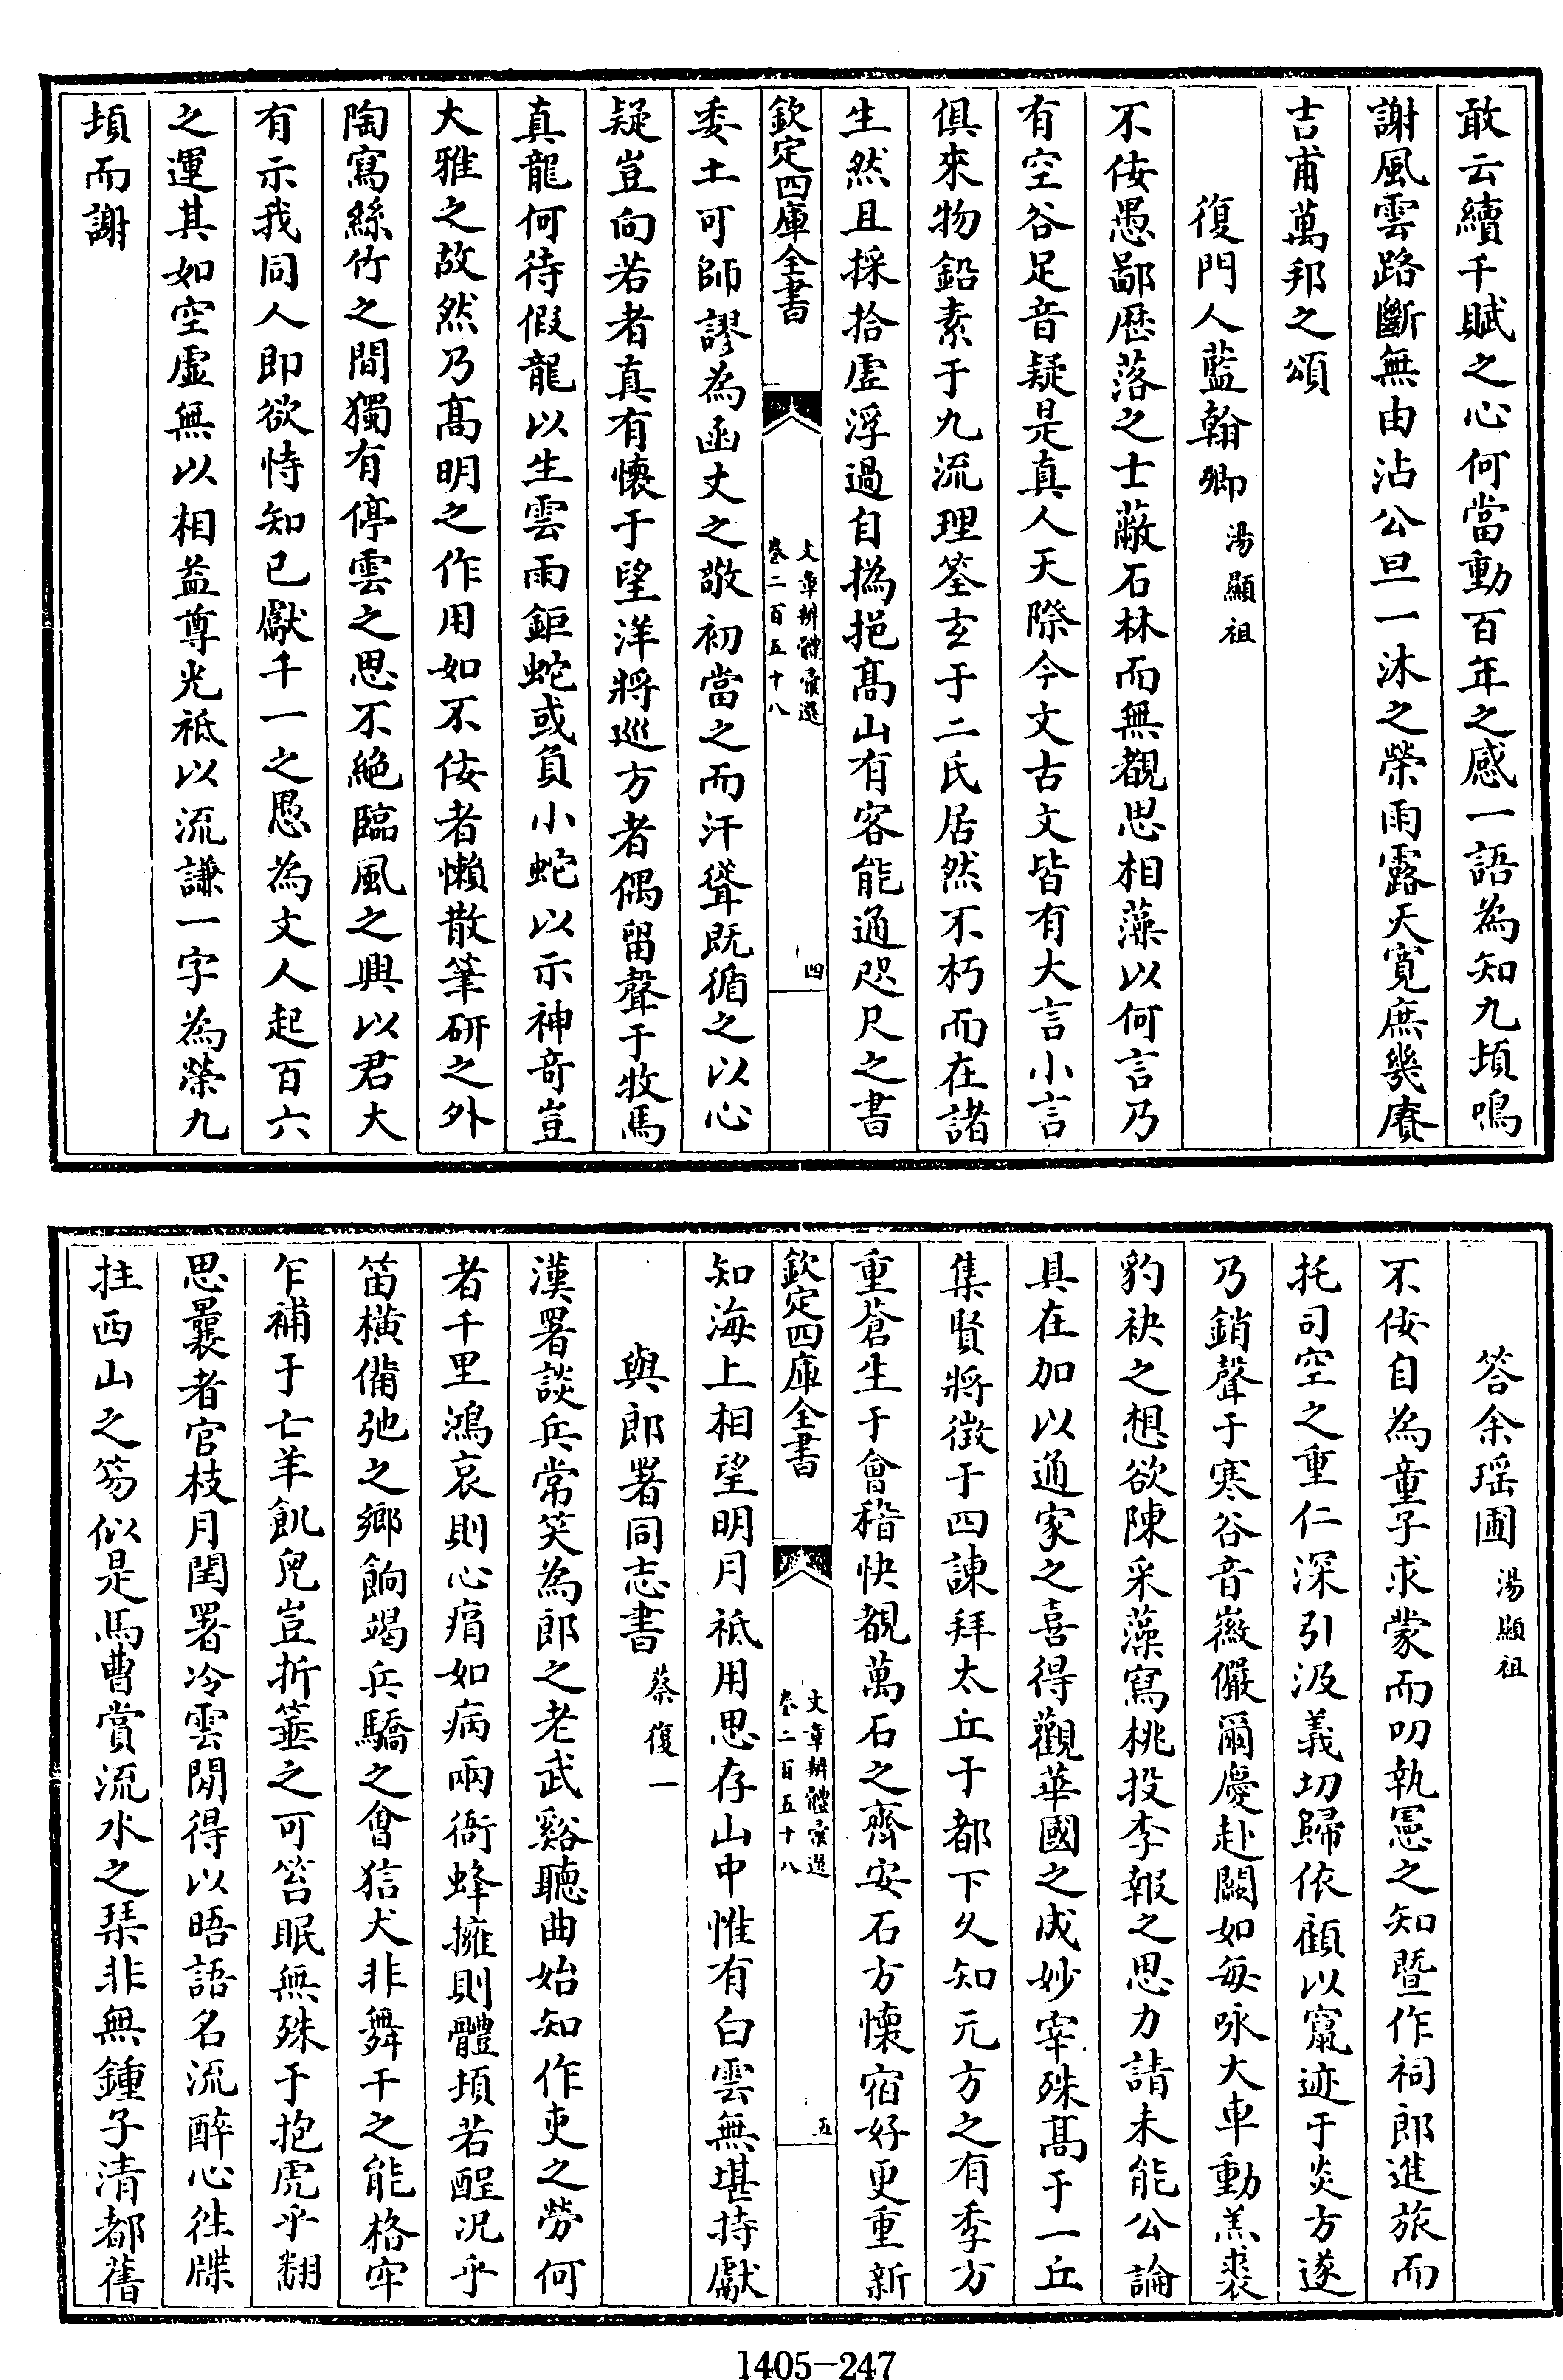 敢云續千賦之心何當動百年之感一語為知九頓鳴
謝風雲路斷無由沾公旦一沐之榮雨露天寛庶幾賡
吉甫萬邦之頌
復門人藍翰卿 湯顯祖
不佞愚鄙歴落之士蔽石林而無覩思相藻以何言乃
有空谷足音疑是真人天際今文古文皆有大言小言
俱來物鉛素于九流理筌玄于二氏居然不朽而在諸
生然且採拾虚浮過自撝挹髙山有客能通咫尺之書
欽定四庫全書
文章辨體彚選
卷二百五十八
四
委土可師謬為函丈之敬初當之而汗聳既循之以心
疑豈向若者真有懷于望洋將巡方者偶留聲于牧馬
真龍何待假龍以生雲雨鉅蛇或負小蛇以示神奇豈
大雅之故然乃髙明之作用如不佞者懶散筆研之外
陶寫絲竹之間獨有停雲之思不絶臨風之興以君大
有示我同人即欲恃知已獻千一之愚為文人起百六
之運其如空虚無以相益尊光祗以流謙一字為榮九
頓而謝
答余瑶圃 湯顯祖
不佞自為童子求蒙而叨執憲之知暨作祠郎進旅而
托司空之重仁深引汲義切歸依顧以竄迹于炎方遂
乃銷聲于寒谷音徽儼爾慶赴闕如每咏大車動羔裘
豹袂之想欲陳采藻寫桃投李報之思力請未能公論
具在加以通家之喜得觀華國之成妙宰殊髙于一丘
集賢將徴于四諫拜太丘于都下久知元方之有季方
重蒼生于會稽快覩萬石之齊安石方懷宿好更重新
欽定四庫全書
文章辨體彚選
卷二百五十八
五
知海上相望明月祗用思存山中惟有白雲無堪持獻
與郎署同志書 蔡復一
漢署談兵常笑為郎之老武谿聽曲始知作吏之勞何
者千里鴻哀則心痟如病兩衙蜂擁則體頓若酲况乎
笛横備弛之鄉餉竭兵驕之會狺犬非舞干之能格牢
乍補于亡羊飢兕豈折箠之可笞眠無殊于抱虎乎翻
思曩者官枝月閨署冷雲閒得以晤語名流醉心往牒
拄西山之笏似是馬曹賞流水之琹非無鍾子清都舊
1405-247